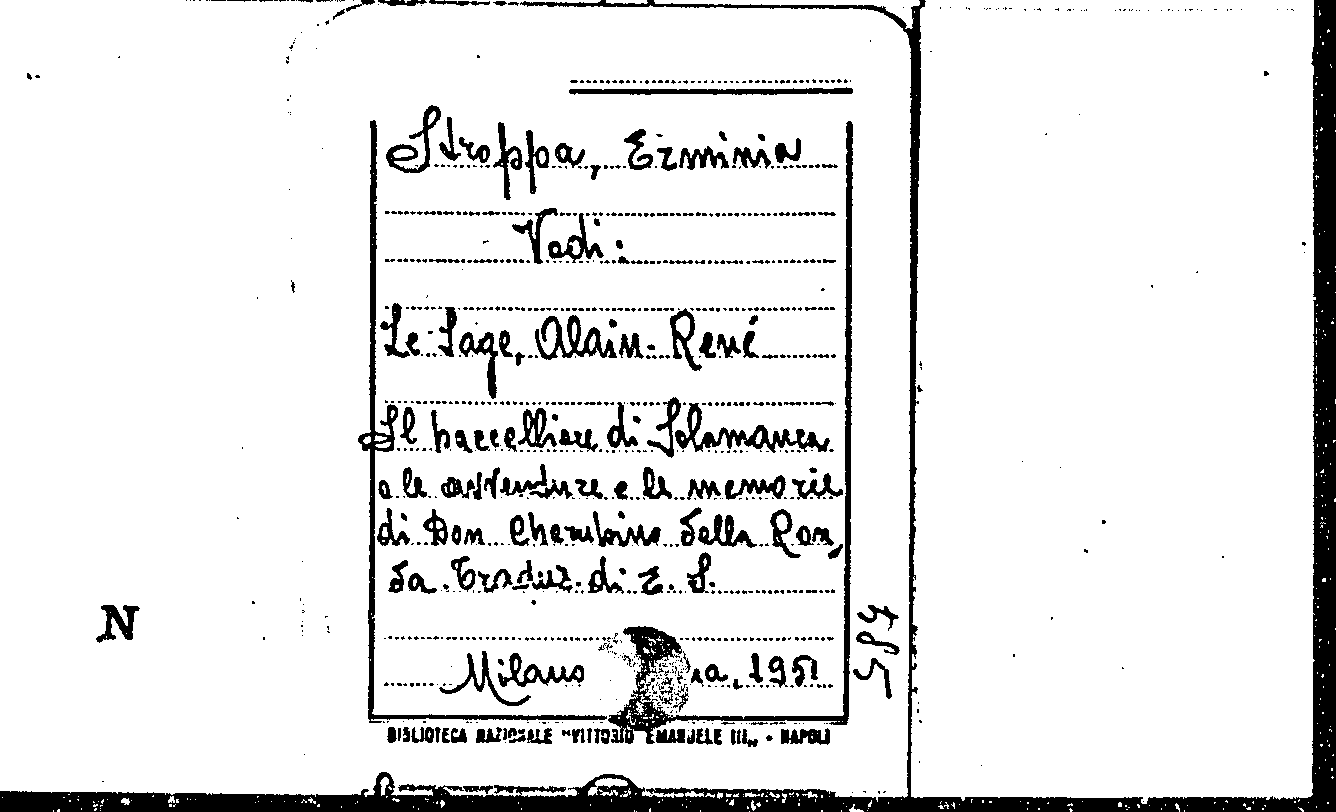 Stroppa, Erminia
Vedi:
Le Sage, Alain-René
Il baccelliere di Salamanca
o le avventure e le memorie
di Don Cherubino della Ron,
da. Traduz. di E. S.
Milano 1951
BIBLIOTECA NAZIONALE "VITTORIO EMANUELE III„ - NAPOLI
N
587